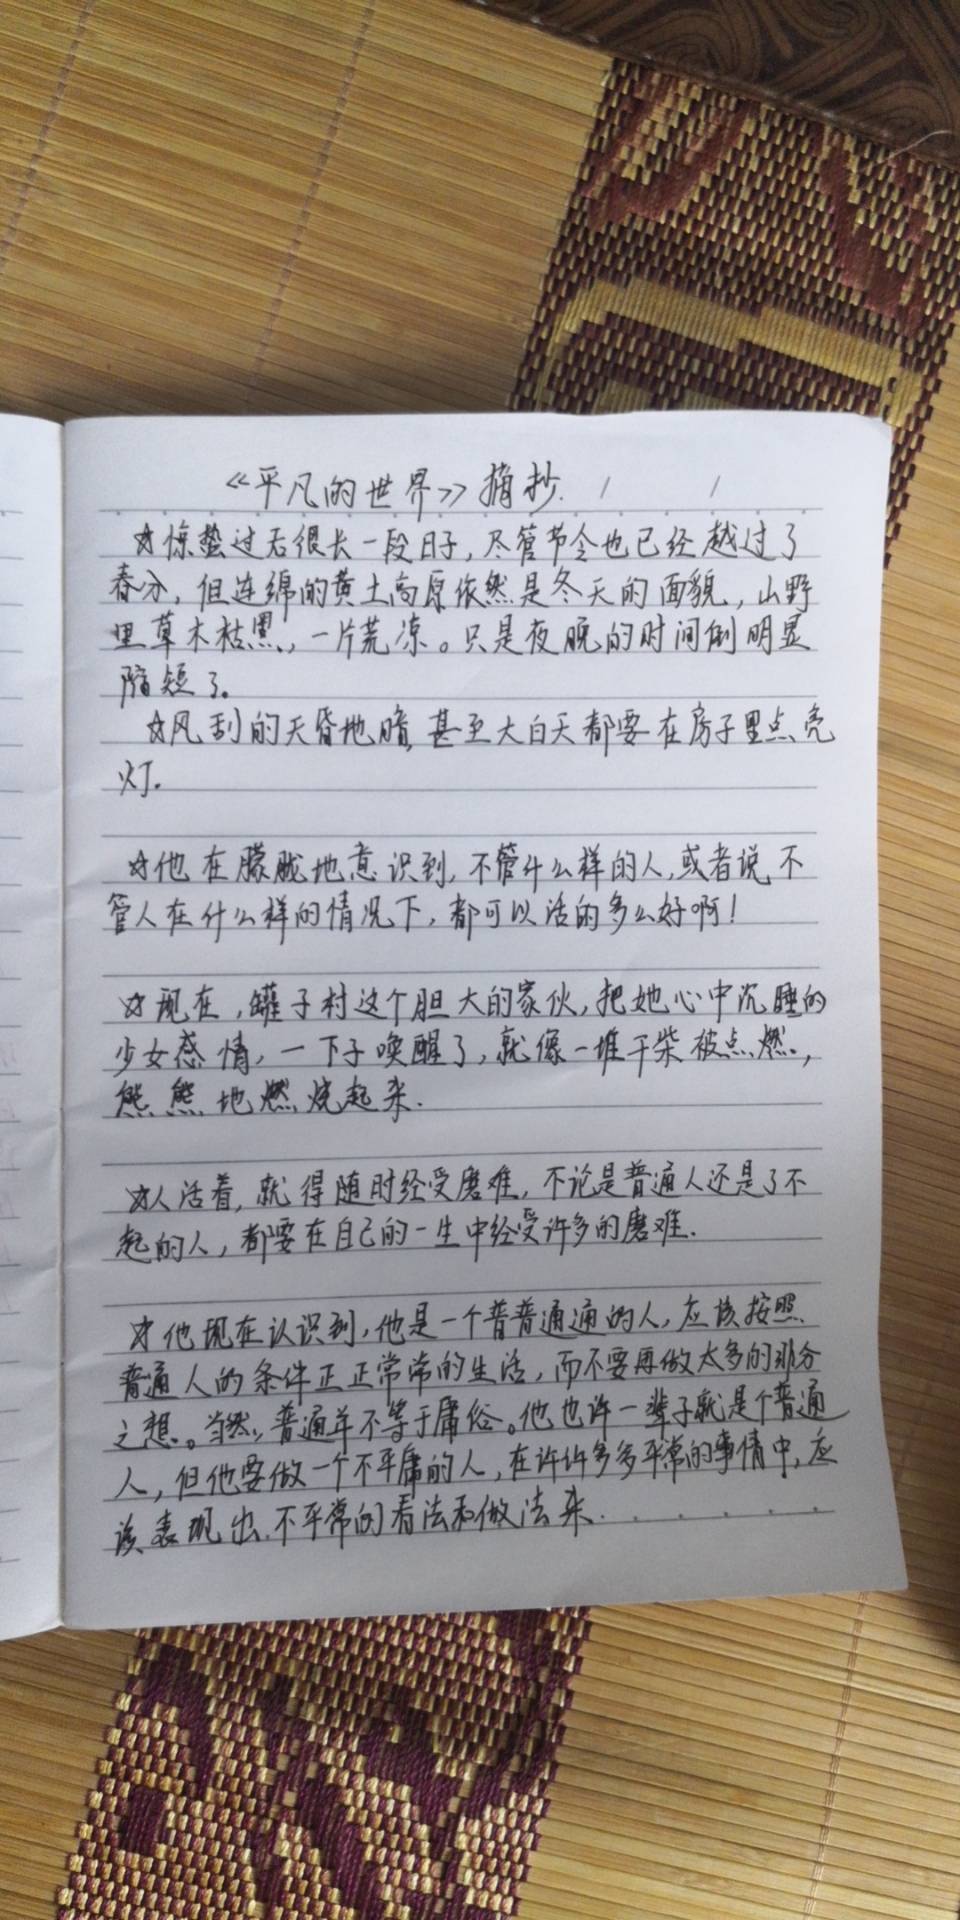 《平凡的世界》摘抄.
☆惊蛰过后很长一段日子，尽管节令也已经越过了
春分，但连绵的黄土高原依然是冬天的面貌，山野
里草木枯黑，一片荒凉。只是夜晚的时间倒明显
缩短了。
☆风刮的天昏地暗,甚至大白天都要在房子里点亮
灯。
☆他在朦胧地意识到,不管什么样的人,或者说不
管人在什么样的情况下,都可以活的多么好啊!
☆现在,罐子村这个胆大的家伙,把她心中沉睡的
少女感情,一下子唤醒了,就像一堆干柴被点燃,
熊熊地燃烧起来.
☆人活着,就得随时经受磨难,不论是普通人还是了不
起的人,都要在自己的一生中经受许多的磨难.
☆他现在认识到,他是一个普普通通的人,应该按照
普通人的条件正正常常的生活,而不要再做太多的非分
之想。当然,普通并不等于庸俗。他也许一辈子就是个普通
人,但他要做一个不平庸的人,在许许多多平常的事情中,应
该表现出不平常的看法和做法来.